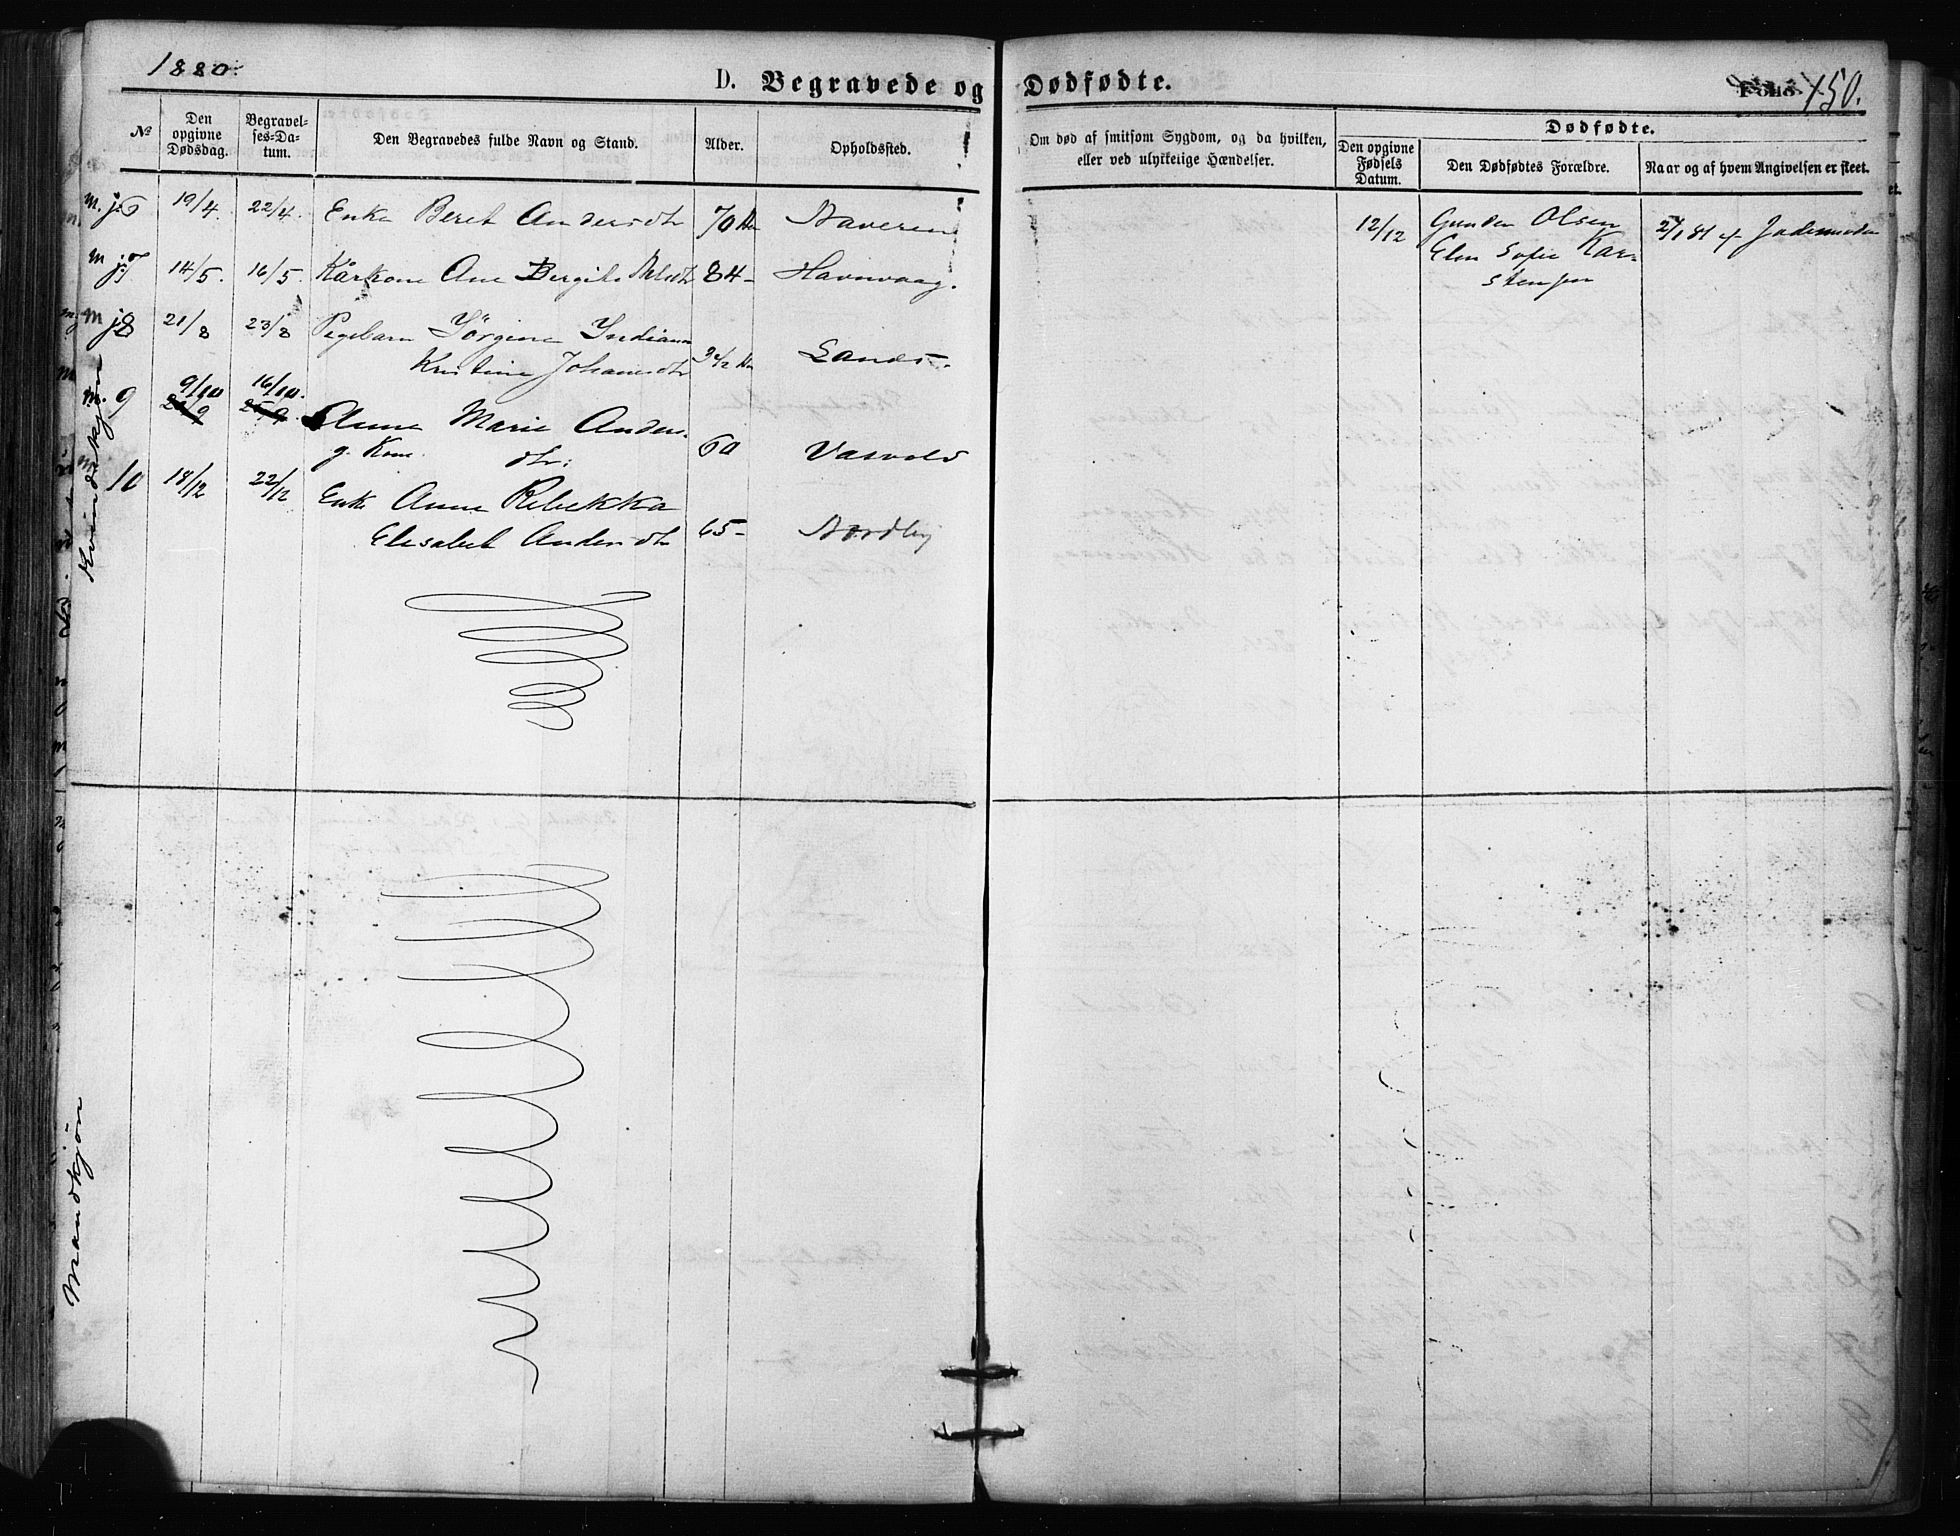 1880.
D. Begravede og Dødfødte.
Folio 150.
№
Den opgivne Dødsdag.
Begravel-ses-Da-tum.
Den Begravedes fulde Navn og Stand.
Alder.
Opholdssted.
Om død af smitsom Sygdom, og da hvilken, eller ved ulykkelige Hændelser.
Dødfødte.
Den opgivne Fødsels Datum.
Den Dødfødtes Forældre.
Naar og af hvem Angivelsen er skeet.
Kvindekjøn
m. 6 19/4 22/4. Enke Beret Andersdtr 70 Naveren
12/12 Gunder Olsen 2/1 81 af Jodemoder
Elen Sofie Kar-
stensen
m 7 14/5. 16/5. Kårkone Ane Bergite 84- Havnvaag.
m 8 21/8 23/8 Pigebarn Jörgine Indiana
Kristine Johansdtr Sands.
m. 9 9/10 16/10. Anna Marie Anders-
g. Kone. dtr: 60 Vasvold
m 10 18/12 22/12 Enke Anne Rebekka
Elisabet Andersdtr 65- Nordby
Mandkjön